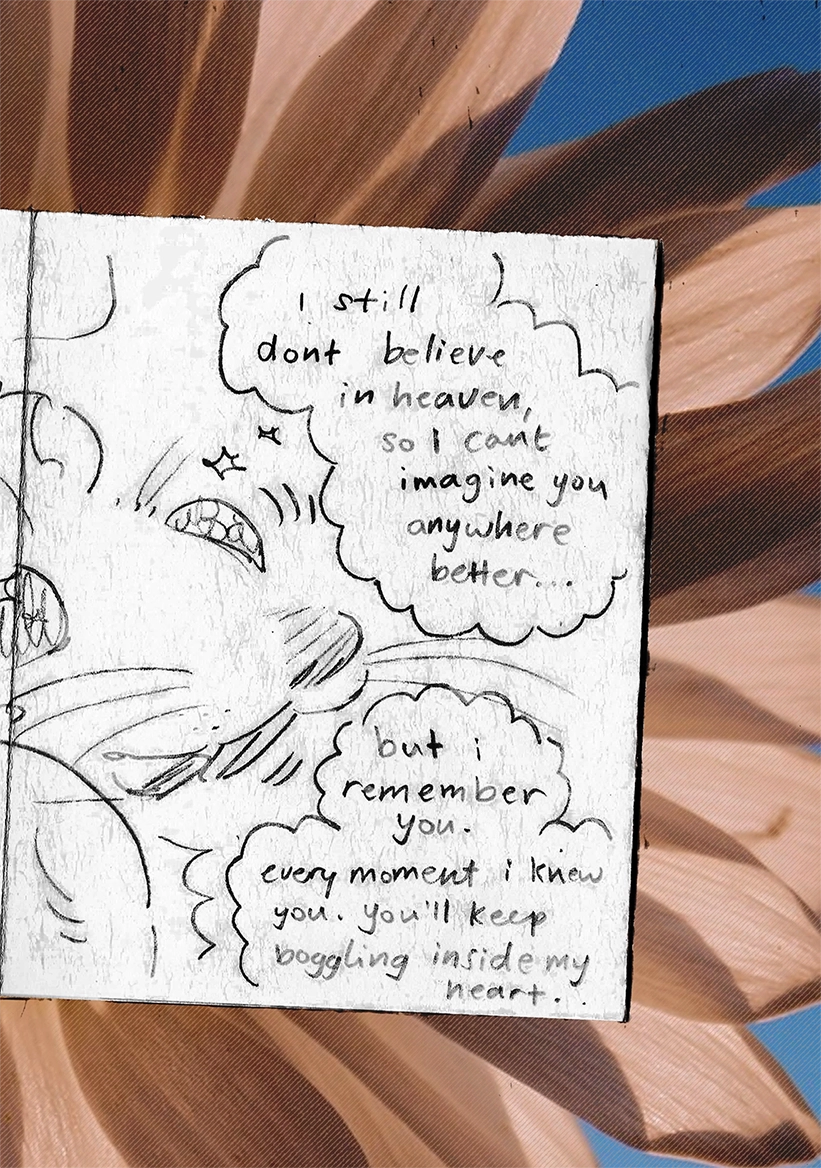 i still
dont believe
in heaven,
so I cant
imagine you
anywhere
better...
but i
remember
you.
every moment i knew
you. you'll keep
boggling inside my
heart.